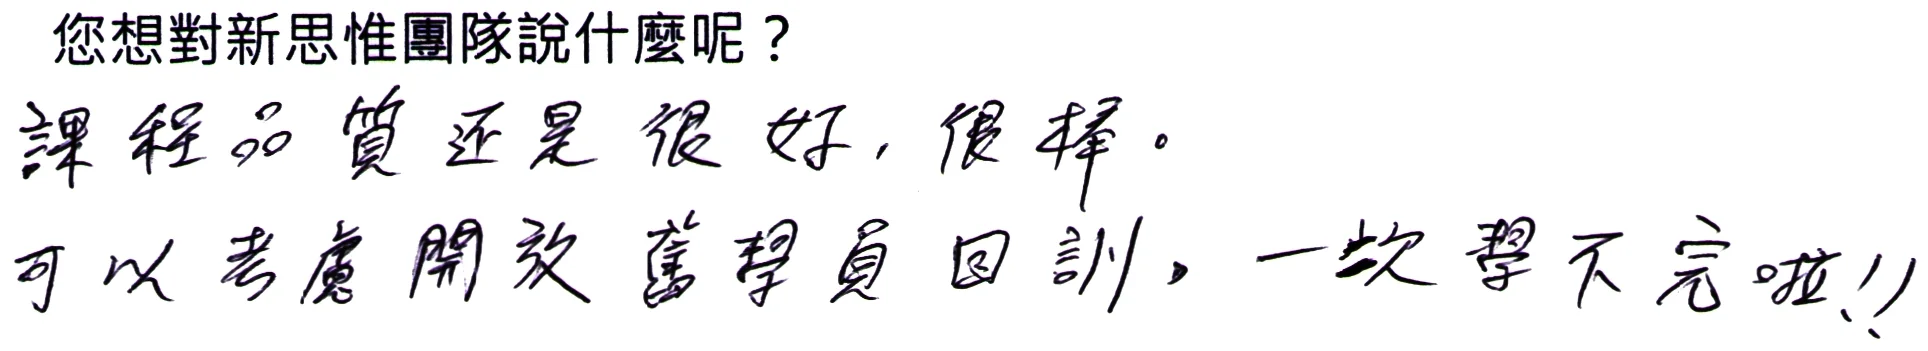 您想對新思惟團隊說什麼呢？
課程品質还是很好，很棒。
可以考慮開放舊學員回訓。一次學不完啦!!